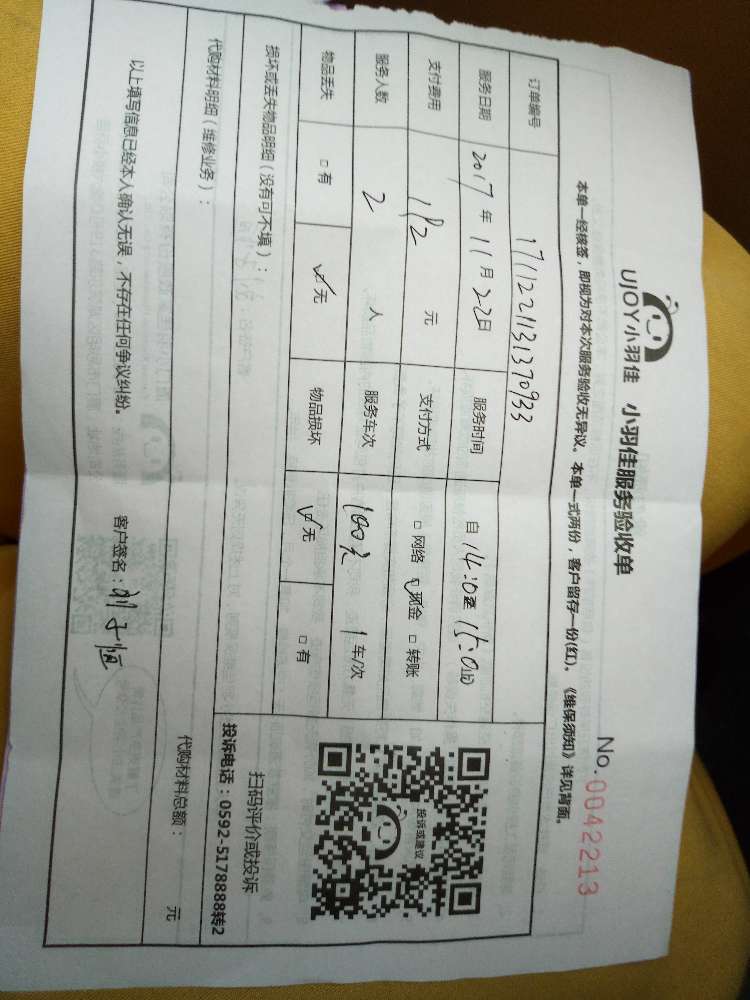 UJOY小羽佳 小羽佳服务验收单
No.0042213
本单一经核签，即视为对本次服务验收无异议。本单一式两份，客户留存一份(红)。《维保须知》详见背面。
订单编号 1711221131370933
服务日期 2017年11月22日 服务时间 自14:0至15:0止
支付费用 元 支付方式 □网络 ☑现金 □转账
服务人数 2 人 服务车次 1车/次
物品丢失 □有 ☑无 物品损坏 ☑无 □有
损坏或丢失物品明细（没有可不填）：
代购材料明细（维修业务）：
代购材料总额： 元
以上填写信息已经本人确认无误，不存在任何争议纠纷。 客户签名：刘子恒
投诉或建议
扫码评价或投诉
投诉电话：0592-5178888转2